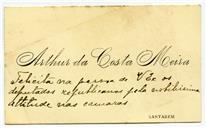 Arthur da Costa Meira
Felicita na pessoa de V. Ex. os
deputados republicanos pela nobilissima
attitude nas camaras
SANTAREM